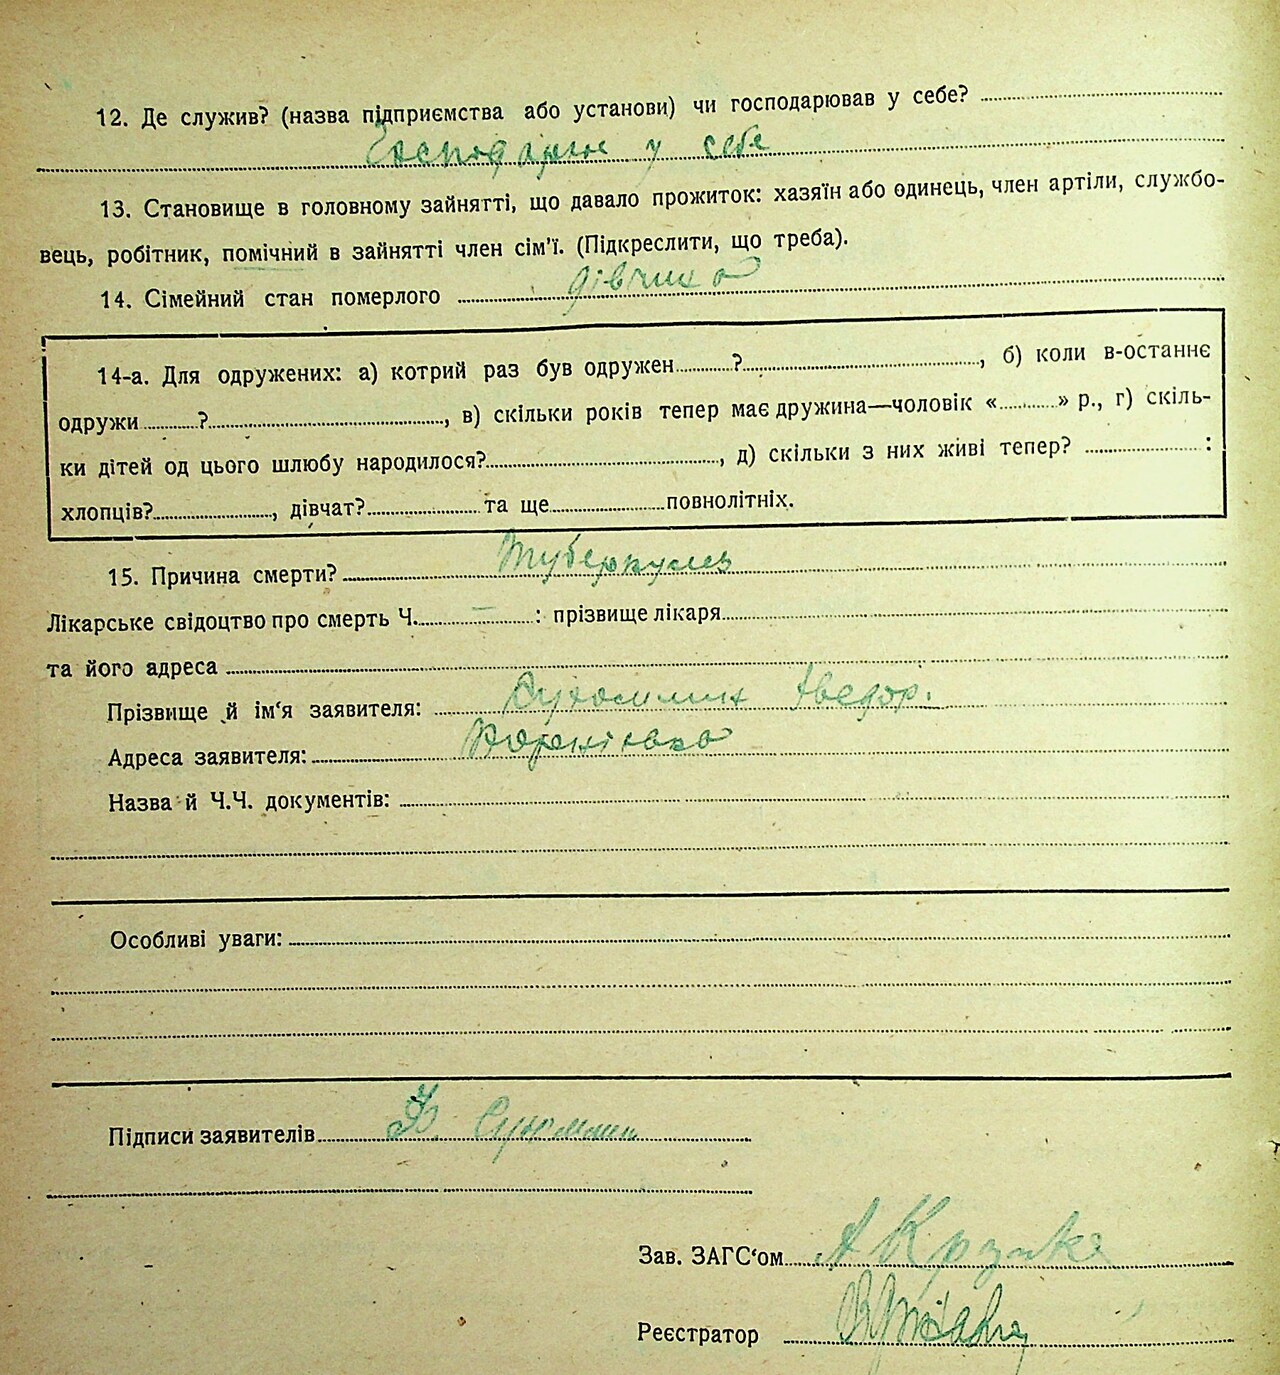 12. Де служив? (назва підприємства або установи) чи господарював у себе?
Господарює у себе
13. Становище в головному зайнятті, що давало прожиток: хазяїн або одинець, член артіли, службо-
вець, робітник, помічний в зайнятті член сім'ї. (Підкреслити, що треба).
14. Сімейний стан померлого дівчина
14-а. Для одружених: а) котрий раз був одружен ? , б) коли в-останнє
одружи ? , в) скільки років тепер має дружина—чоловік « » р., г) скіль-
ки дітей од цього шлюбу народилося? , д) скільки з них живі тепер? :
хлопців? , дівчат? та ще повнолітніх.
15. Причина смерти? Туберкулез
Лікарське свідоцтво про смерть Ч. — : прізвище лікаря
та його адреса
Прізвище й ім‘я заявителя: Сухомлин
Адреса заявителя:
Назва й Ч.Ч. документів:
Особливі уваги:
Підписи заявителів
Зав. ЗАГС‘ом
Реєстратор